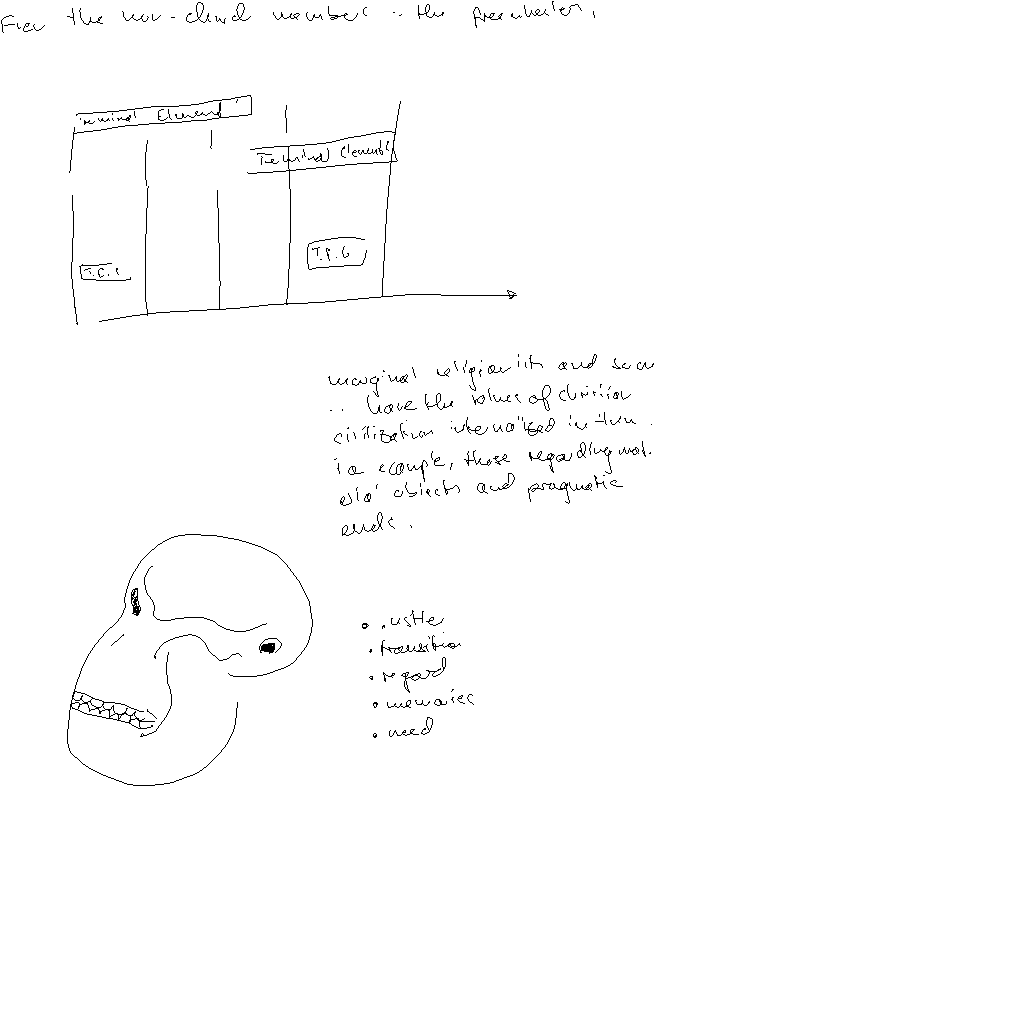 Even the non-church members .. the freeholders,
Terminal Element
Terminal Elements
T.P. 6
marginal religionists and
.. have the values of christian
civilization internalized in them.
example, those regarding mat.
objects and pragmatic
ends.
• transition
• regard
• memories
• need